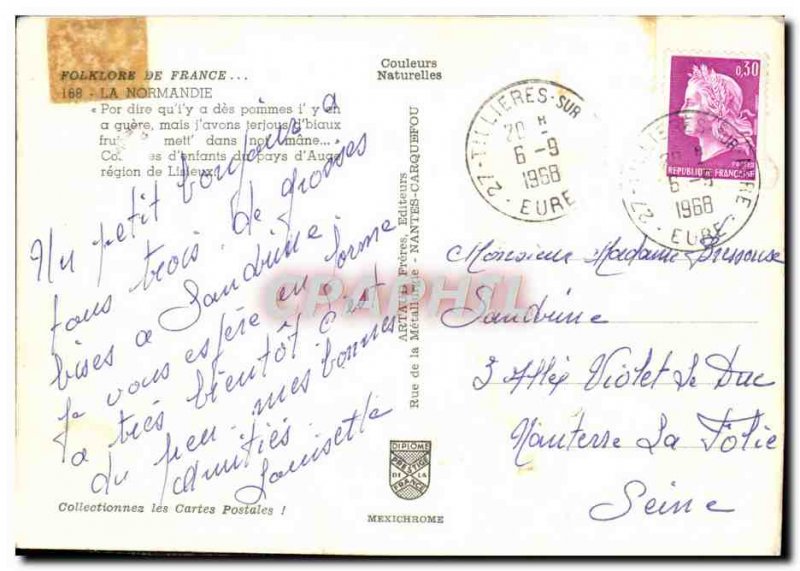 FOLKLORE DE FRANCE...
168 - LA NORMANDIE
« Por dire qu'i'y a dès poimmes i' y en
a guère, mais j'avons terjous d'biaux
mett' dans not' mâne...
d'enfants du pays d'Auge
région de Lisieux.
Couleurs
Naturelles
Un petit bonjour à
tous trois de grosses
bises a Sandrine
Je vous espère en forme
a très bientôt c'est
du peu mes bonnes
amitiés
Louisette
Collectionnez les Cartes Postales !
ARTAUD Frères, Editeurs
Rue de la Métallurgie - NANTES-CARQUEFOU
CPAPHIL
DIPLOME
PRESTIGE
DE LA
FRANCE
MEXICHROME
27 - TILLIERES-SUR
20 H
6 - 9
1968
EURE
0,30
POSTES
REPUBLIQUE FRANÇAISE
27 - TILLIERES-SUR
6 - 9
1968
EURE
Monsieur Madame
Sandrine
3 Allée Violet Le Duc
Nanterre La Folie
Seine